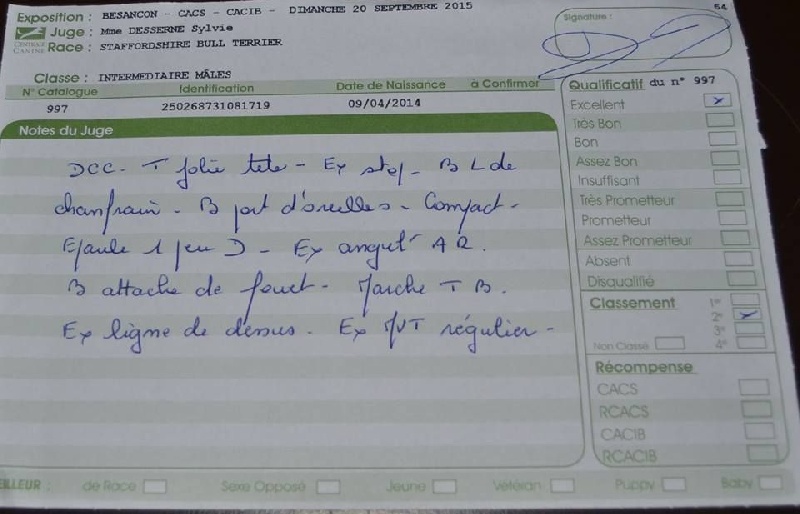 Exposition : BESANCON - CACS - CACIB - DIMANCHE 20 SEPTEMBRE 2015
64
Signature :
Juge : Mme DESSERNE Sylvie
CENTRALE CANINE
Race : STAFFORDSHIRE BULL TERRIER
Classe : INTERMEDIAIRE MÂLES
N° Catalogue Identification Date de Naissance à Confirmer
997 250268731081719 09/04/2014
Notes du Juge
DCC - T jolie tete - Ex stop - B L de
chanfrain - B port d'oreilles - Compact -
Epaule 1 peu D - Ex angul° AR.
B attache de fouet - Marche T B.
Ex ligne de dessus. Ex MVT régulier -
Qualificatif du n° 997
Excellent x
Très Bon
Bon
Assez Bon
Insuffisant
Très Prometteur
Prometteur
Assez Prometteur
Absent
Disqualifié
Classement 1°
2° x
3°
Non Classé 4°
Récompense
CACS
RCACS
CACIB
RCACIB
EILLEUR : de Race Sexe Opposé Jeune Vétéran Puppy Baby